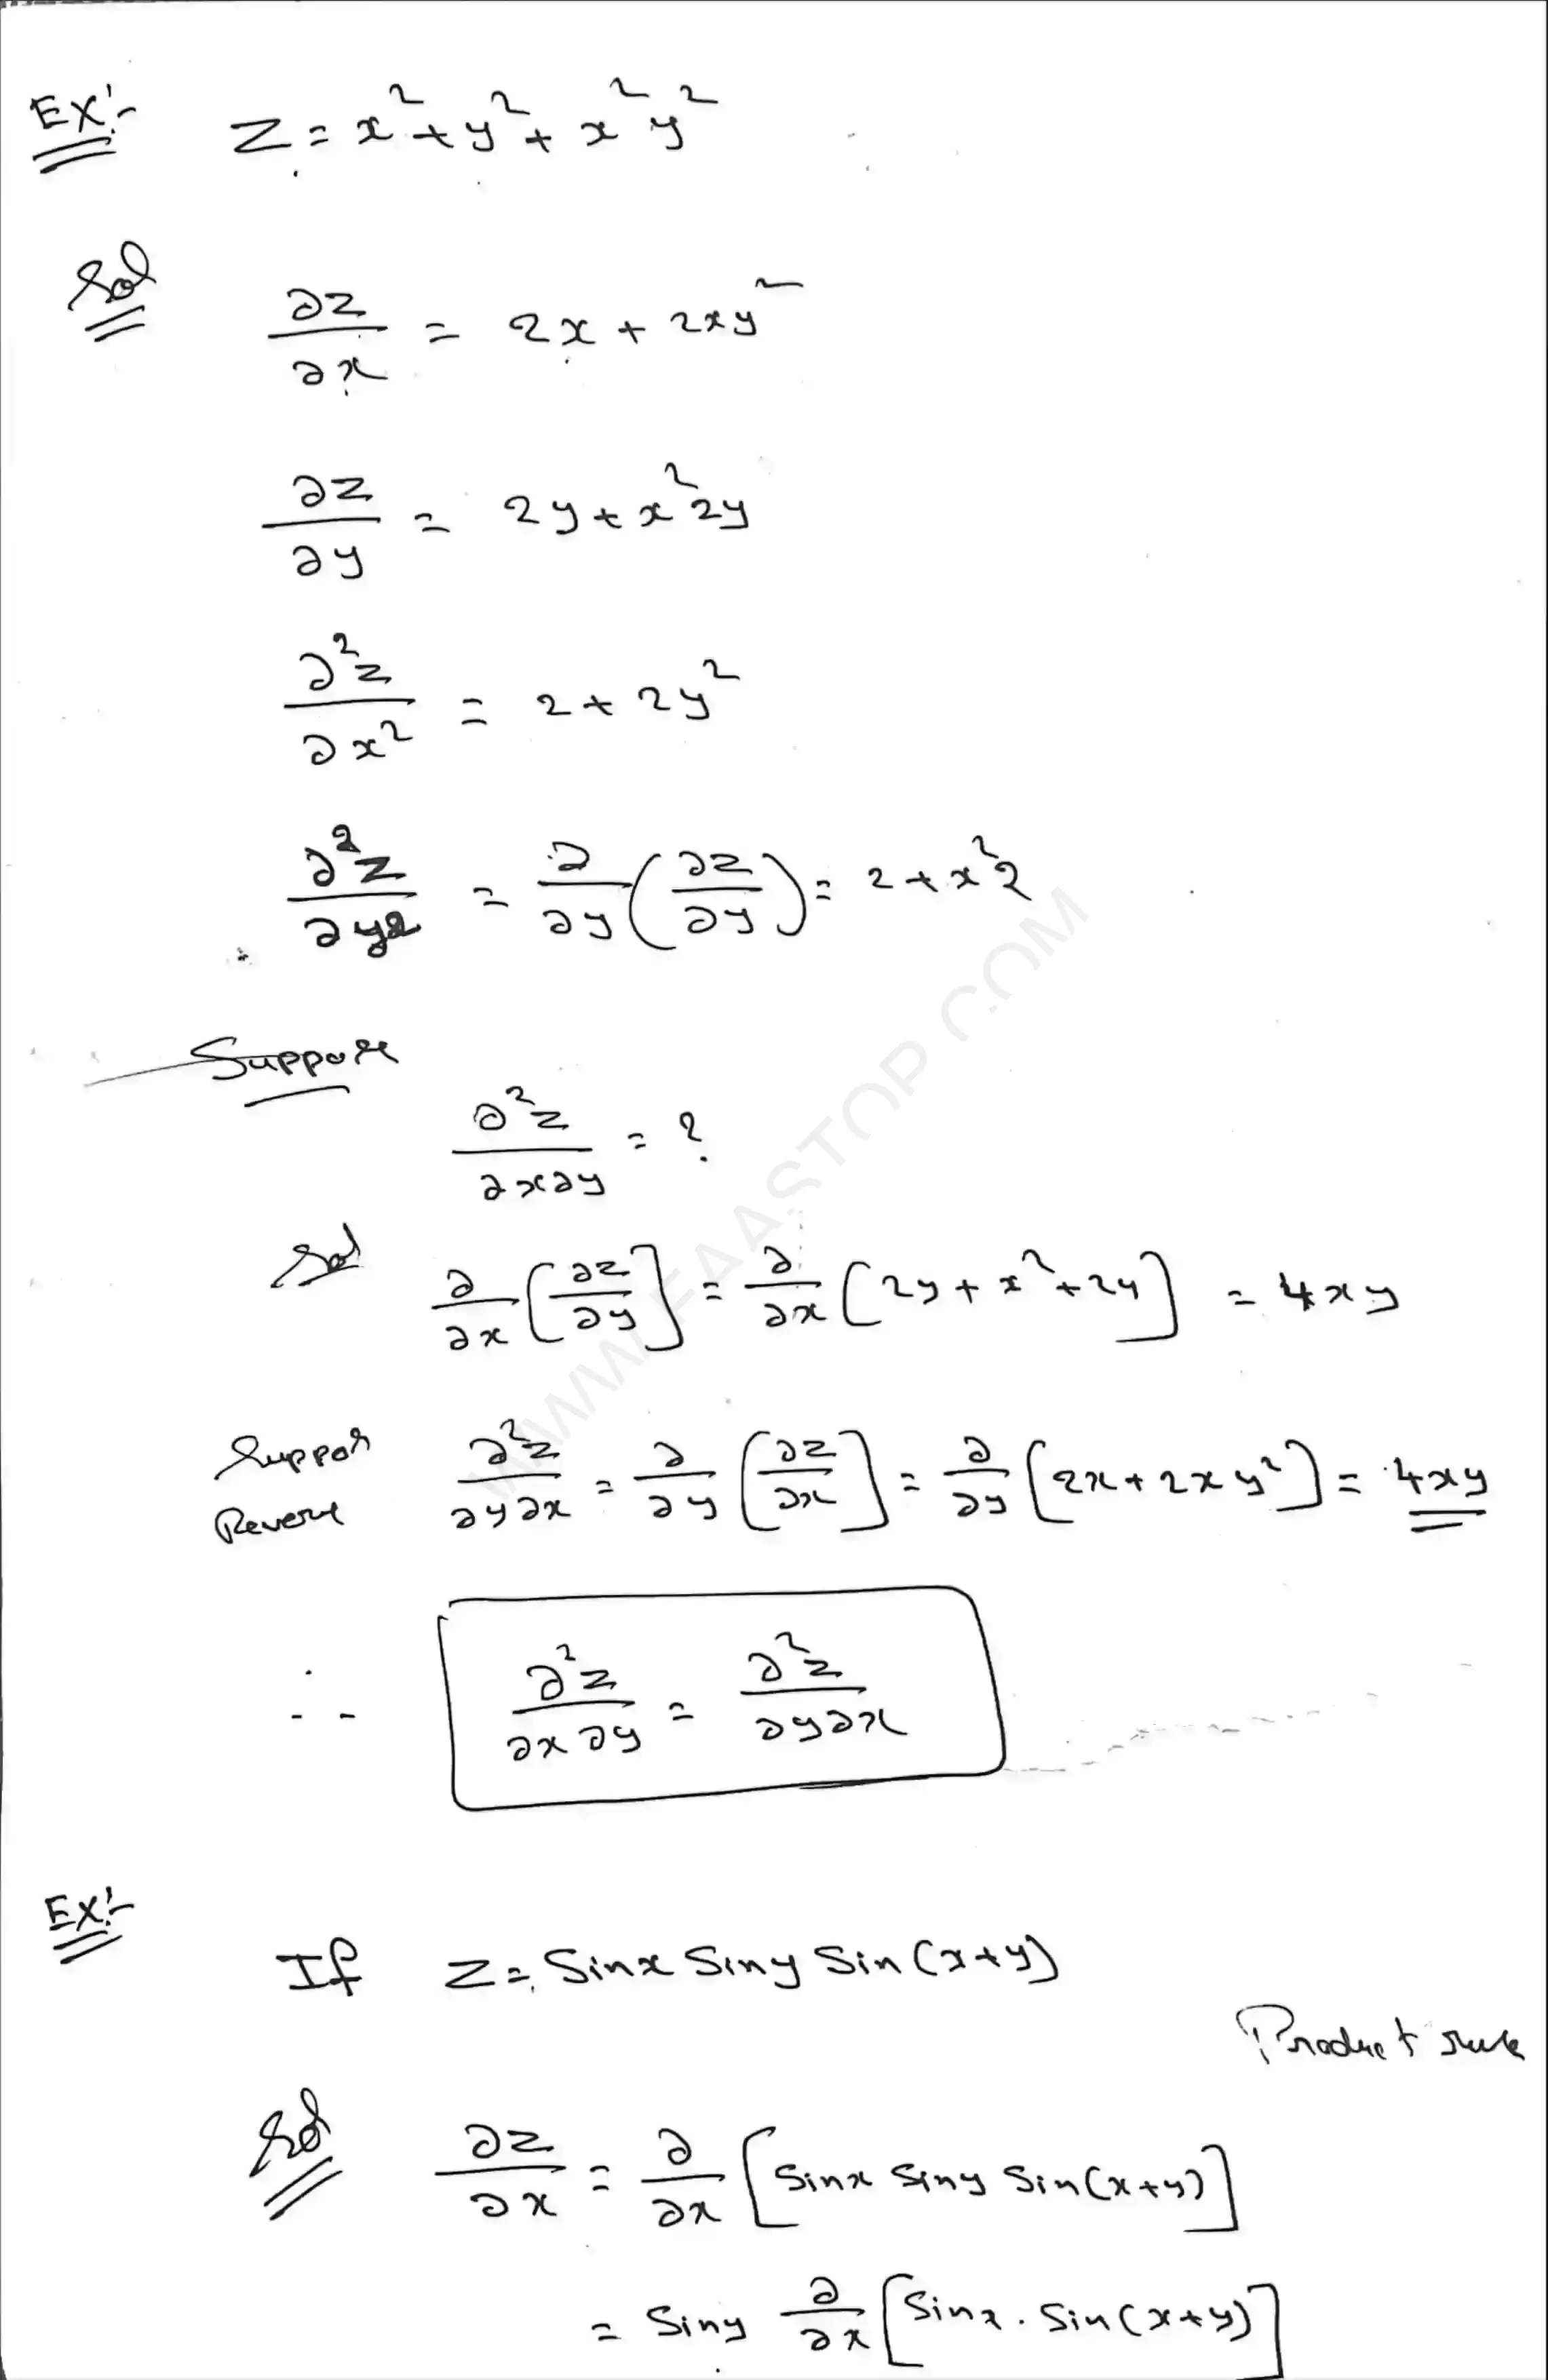 Ex:-  z = x² + y² + x² y²
Sol  ∂z/∂x = 2x + 2xy²
∂z/∂y = 2y + x² 2y
∂²z/∂x² = 2 + 2y²
∂²z/∂y2 = ∂/∂y (∂z/∂y) = 2 + x² 2
Suppose
∂²z/∂x∂y = ?
Sol  ∂/∂x [∂z/∂y] = ∂/∂x [2y + x² + 2y] = 4xy
Suppos  ∂²z/∂y∂x = ∂/∂y [∂z/∂x] = ∂/∂y [2x + 2xy²] = 4xy
Reverse
∴ ∂²z/∂x∂y = ∂²z/∂y∂x
Ex:-
If  z = Sinx Siny Sin(x+y)
Product rule
Sol  ∂z/∂x = ∂/∂x [Sinx Siny Sin(x+y)]
= Siny ∂/∂x [Sinx . Sin(x+y)]